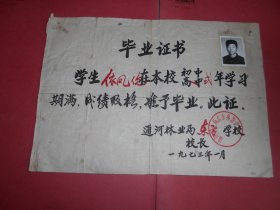 毕业证书
学生 在本校 初中 高中 弍年学习
期满，成绩及格，准予毕业，此证.
通河林业局东方学校
校长
一九七三年一月